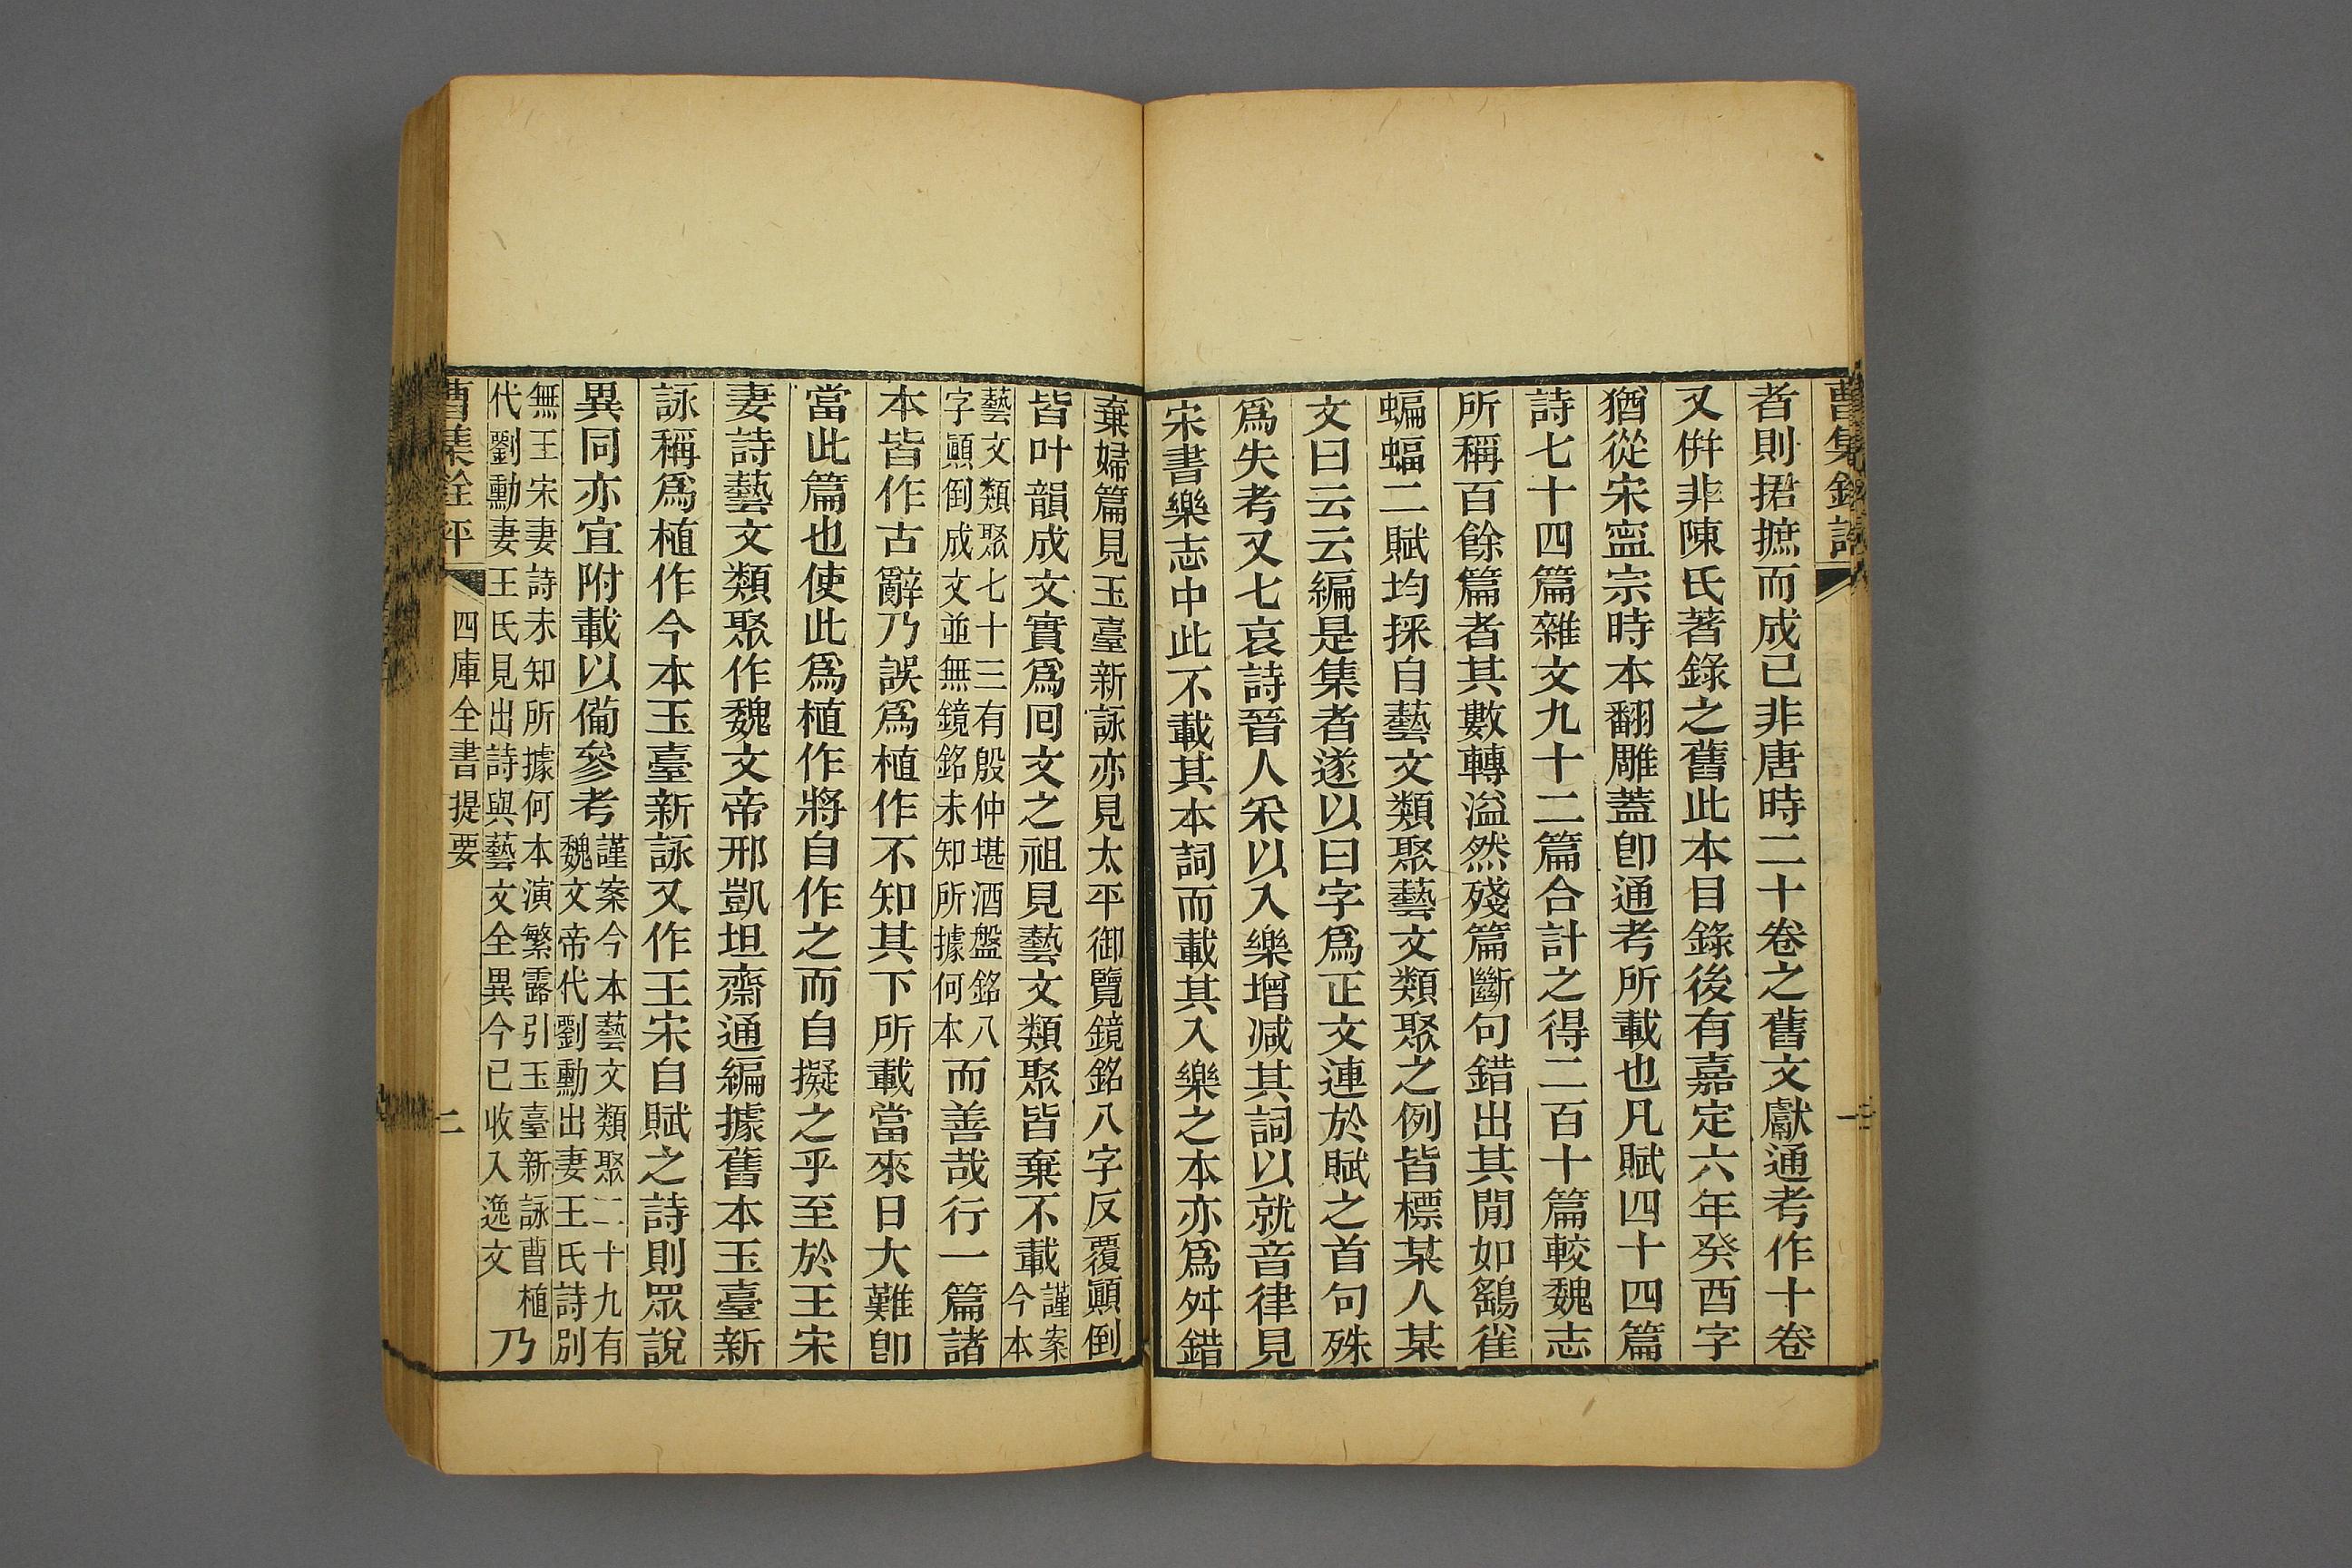 者則捃摭而成已非唐時二十卷之舊文獻通考作十卷
又倂非陳氏著錄之舊此本目錄後有嘉定六年癸酉字
猶從宋寍宗時本翻雕蓋卽通考所載也凡賦四十四篇
詩七十四篇雜文九十二篇合計之得二百十篇較魏志
所稱百餘篇者其數轉溢然殘篇斷句錯出其閒如鷂雀
蝙蝠二賦均採自藝文類聚藝文類聚之例皆標某人某
文曰云云編是集者遂以曰字爲正文連於賦之首句殊
爲失考又七哀詩晉人采以入樂增減其詞以就音律見
宋書樂志中此不載其本詞而載其入樂之本亦爲舛錯
棄婦篇見玉臺新詠亦見太平御覽鏡銘八字反覆顚倒
皆叶韻成文實爲囘文之祖見藝文類聚皆棄不載謹案
今本
藝文類聚七十三有殷仲堪酒盤銘八
字顚倒成文並無鏡銘未知所據何本而善哉行一篇諸
本皆作古辭乃誤爲植作不知其下所載當來日大難卽
當此篇也使此爲植作將自作之而自擬之乎至於王宋
妻詩藝文類聚作魏文帝邢凱坦齋通編據舊本玉臺新
詠稱爲植作今本玉臺新詠又作王宋自賦之詩則眾說
異同亦宜附載以備參考謹案今本藝文類聚二十九有
魏文帝代劉勳出妻王氏詩別
無王宋妻詩未知所據何本演繁露引玉臺新詠曹植
代劉勳妻王氏見出詩與藝文全異今已收入逸文乃
曹集銓評 四庫全書提要 二